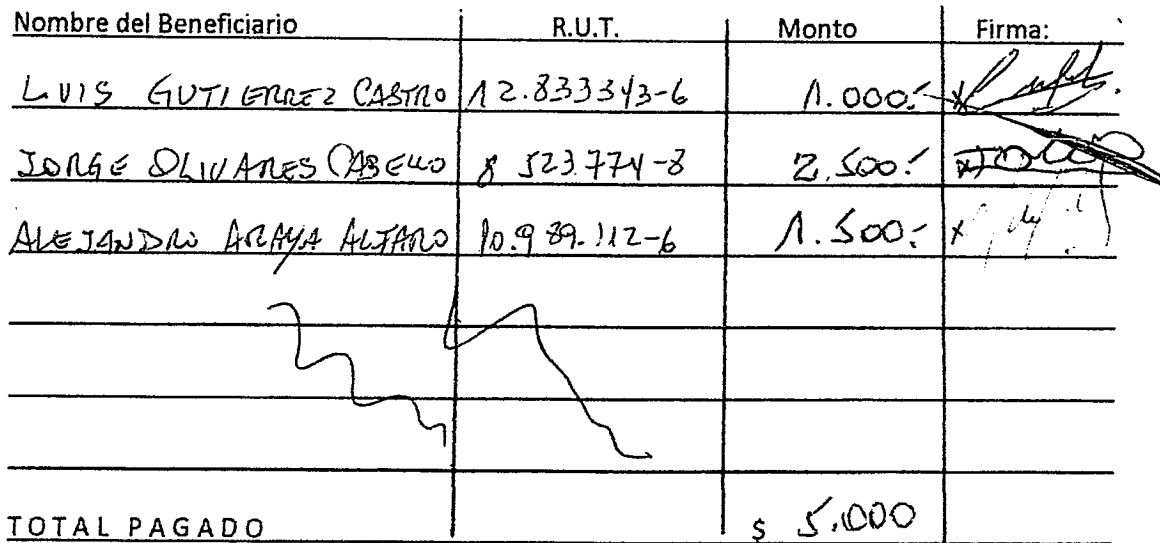 Nombre del Beneficiario R.U.T. Monto Firma:
LUIS GUTIERREZ CASTRO 12.833343-6 1.000.-
JORGE OLIVARES CABELLO 8 523.774-8 2.500.-
ALEJANDRO ARAYA ALFARO 10.989.112-6 1.500.-
TOTAL PAGADO $ 5.000